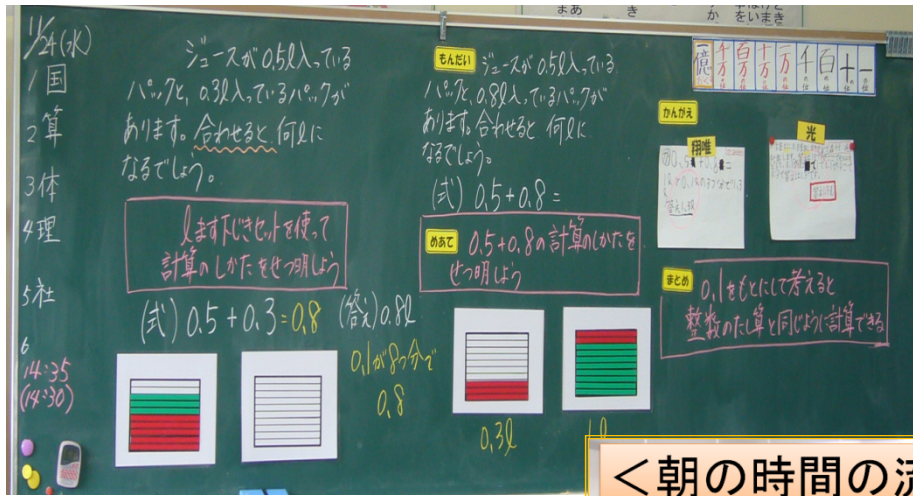 11/24(水)
1国
2算
3体
4理
5社
6
14:35
(14:30)
ジュースが0.5ℓ入っている
パックと、0.3ℓ入っているパックが
あります。合わせると何ℓに
なるでしょう。
ℓます下じきセットを使って
計算のしかたをせつ明しよう
(式) 0.5+0.3=0.8 (答え)0.8ℓ
0.1が8つ分で
0.8
もんだい
ジュースが0.5ℓ入っている
パックと、0.8ℓ入っているパックが
あります。合わせると何ℓに
なるでしょう。
(式) 0.5+0.8=
めあて
0.5+0.8の計算のしかたを
せつ明しよう
0.3ℓ
1ℓ
一億
千万
百万
十万
一万
千
百
十
一
かんがえ
翔唯
光
まとめ
0.1をもとにして考えると
整数のたし算と同じように計算できる
<朝の時間の流